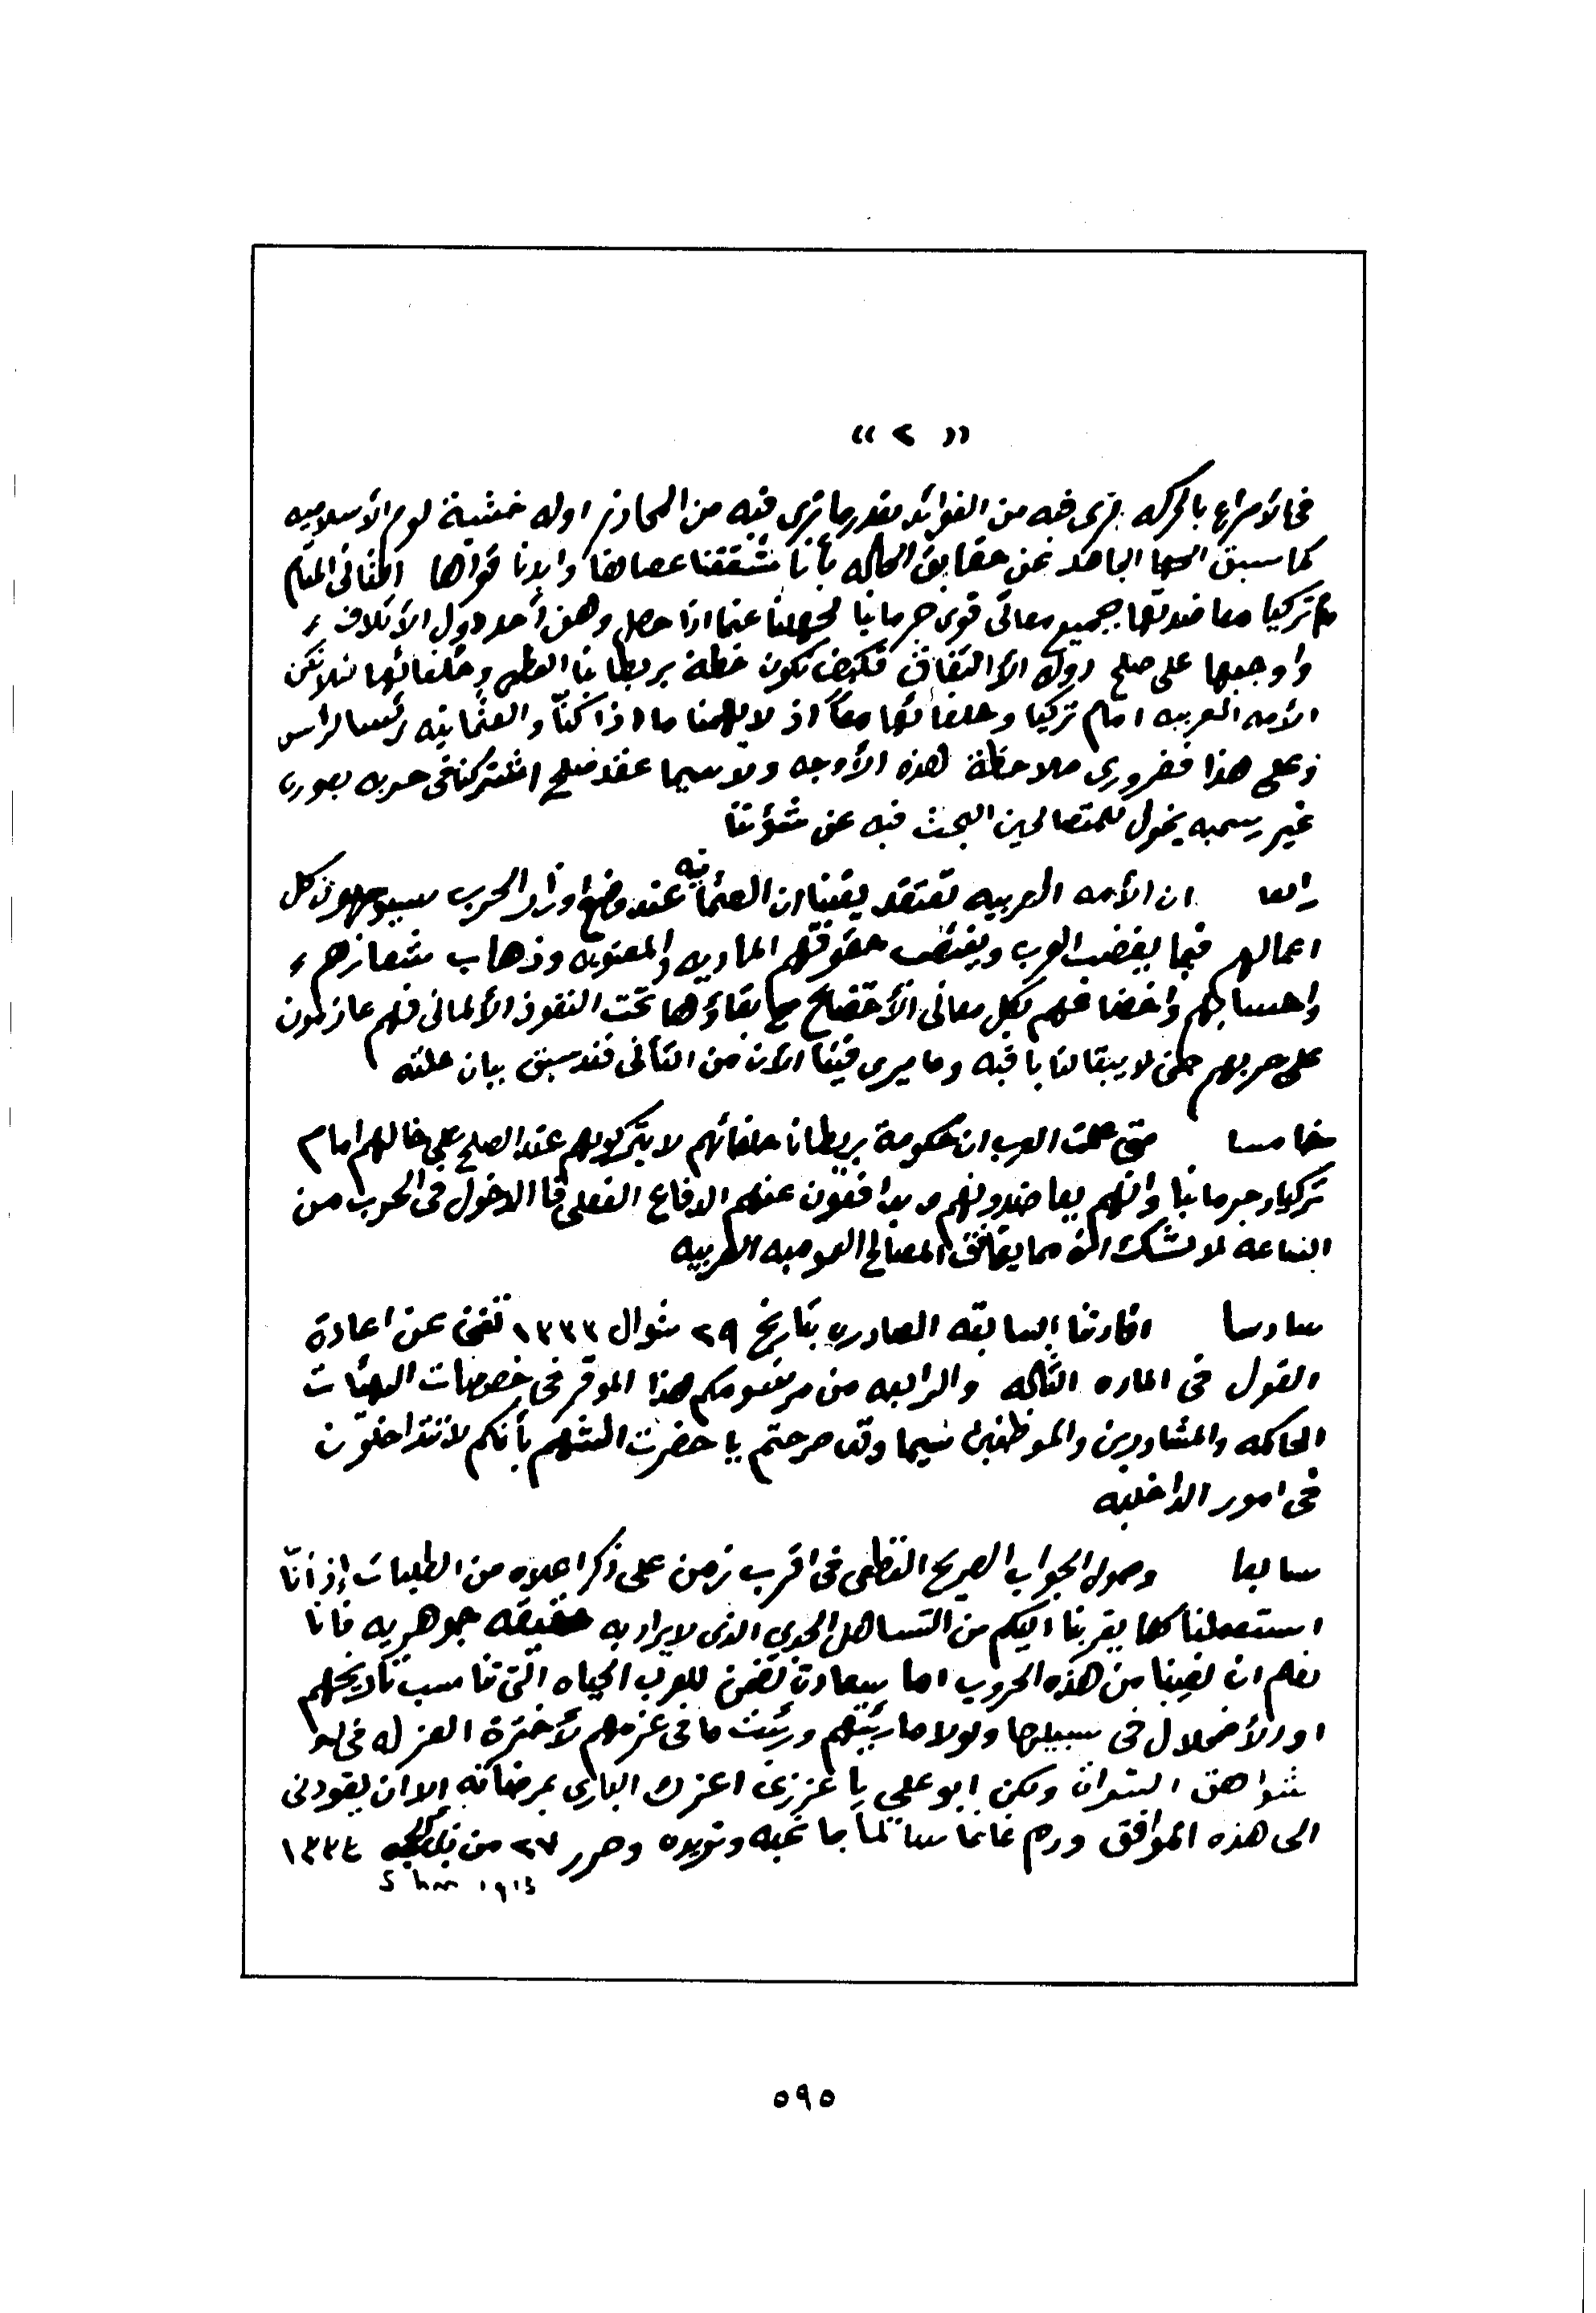 « ٢ »
في الأسراع بالحركه نرى فيه من الفوائد بقدر ما نرى فيه من المحاذر اوله خشية لوم الأسلاميه
كما سبق الجاهد عن حقايق الحاله بأنا شققنا عصاها وابدنا قواها الثاني المقام
مع تركيا معاضدتها جميع معاني قوى جرمانيا لجهلنا عما اذا حصل وهن أحد دول الأئتلاف
واوجبها على صلح دول الأ التفاق فكيف تكون خطة بريطانيا العظمى وحلفائها لئلا تكن
الأمه العربيه امام تركيا وحلفائها معاً اذ لا يهمنا ما اذا كنّا والعثمانيه رئسا لراس
وعلى هذا فضروري ملاحظة هذه الأوجه ولا سيما عقد صلح اشتركنا في حربه بصوره
غير رسميه يخول للمتصالحين البحث فيه عن شؤننا
رابعا ان الأمه العربيه تعتقد يقينا ان العثمانيه عند وضع اوزار الحرب سيوجهون كل
اعمالهم فيما يغضب العرب ويغتصب حقوقهم الماديه والمعنويه وذهاب شعائرهم
واحسابهم واخضاعهم بكل معاني الأخضاع مع بقاؤها تحت النفوذ الألماني فهم عازمون
على حربهم حتى لا يبقا لنا باقيه وما يرى فينا الآن من التأني فقد سبق بيان علته
خامسا متى علمت العرب ان حكومة بريطانيا حلفائهم لا يتركونهم عند الصلح على حالهم امام
تركيا وجرمانيا وانهم يعاضدونهم ويدافعون عنهم الدفاع الفعلي فا الدخول في الحرب من
الساعه لا نشك انه مما يوافق المصالح العموميه العربيه
سادسا افادتنا السابقه الصادره بتاريخ ٢٩ شوال ١٣٣٣ تغني عن اعادة
القول في الماده الثالثه والرابعه من مرقومكم هذا الموقر في خصوصات الهيئات
الحاكمه والمشاورين والموظفين سيما وقد صرحتم يا حضرت الشهم بأنكم لا تتداخلون
في امور الداخليه
سابعا وصول الجواب الصريح القطعي في اقرب زمن على ذكر اعلاه من الطلبات إذ انّا
استعملنا كلما يقربنا اليكم من التساهل الجدي الذي لا يراد به حقيقه جوهريه فانا
نعلم ان نصيبنا من هذه الحروب اما سعادة تضمن للعرب الحياه التي تناسب تاريخهم
او الأضمحلال في سبيلها ولولا ما رئيتهم ورئيت ما في عزمهم لأخترة العزله في
شواهق السراة ولكن ابو علي يا عزيزي اعزك الباري بمرضاته الا ان يقودني
الى هذه المواقف ودم غانما سالماً بما تحبه وتوده وحرر ٢٧ من ذي الحجه ١٣٣٤
٥٩٥